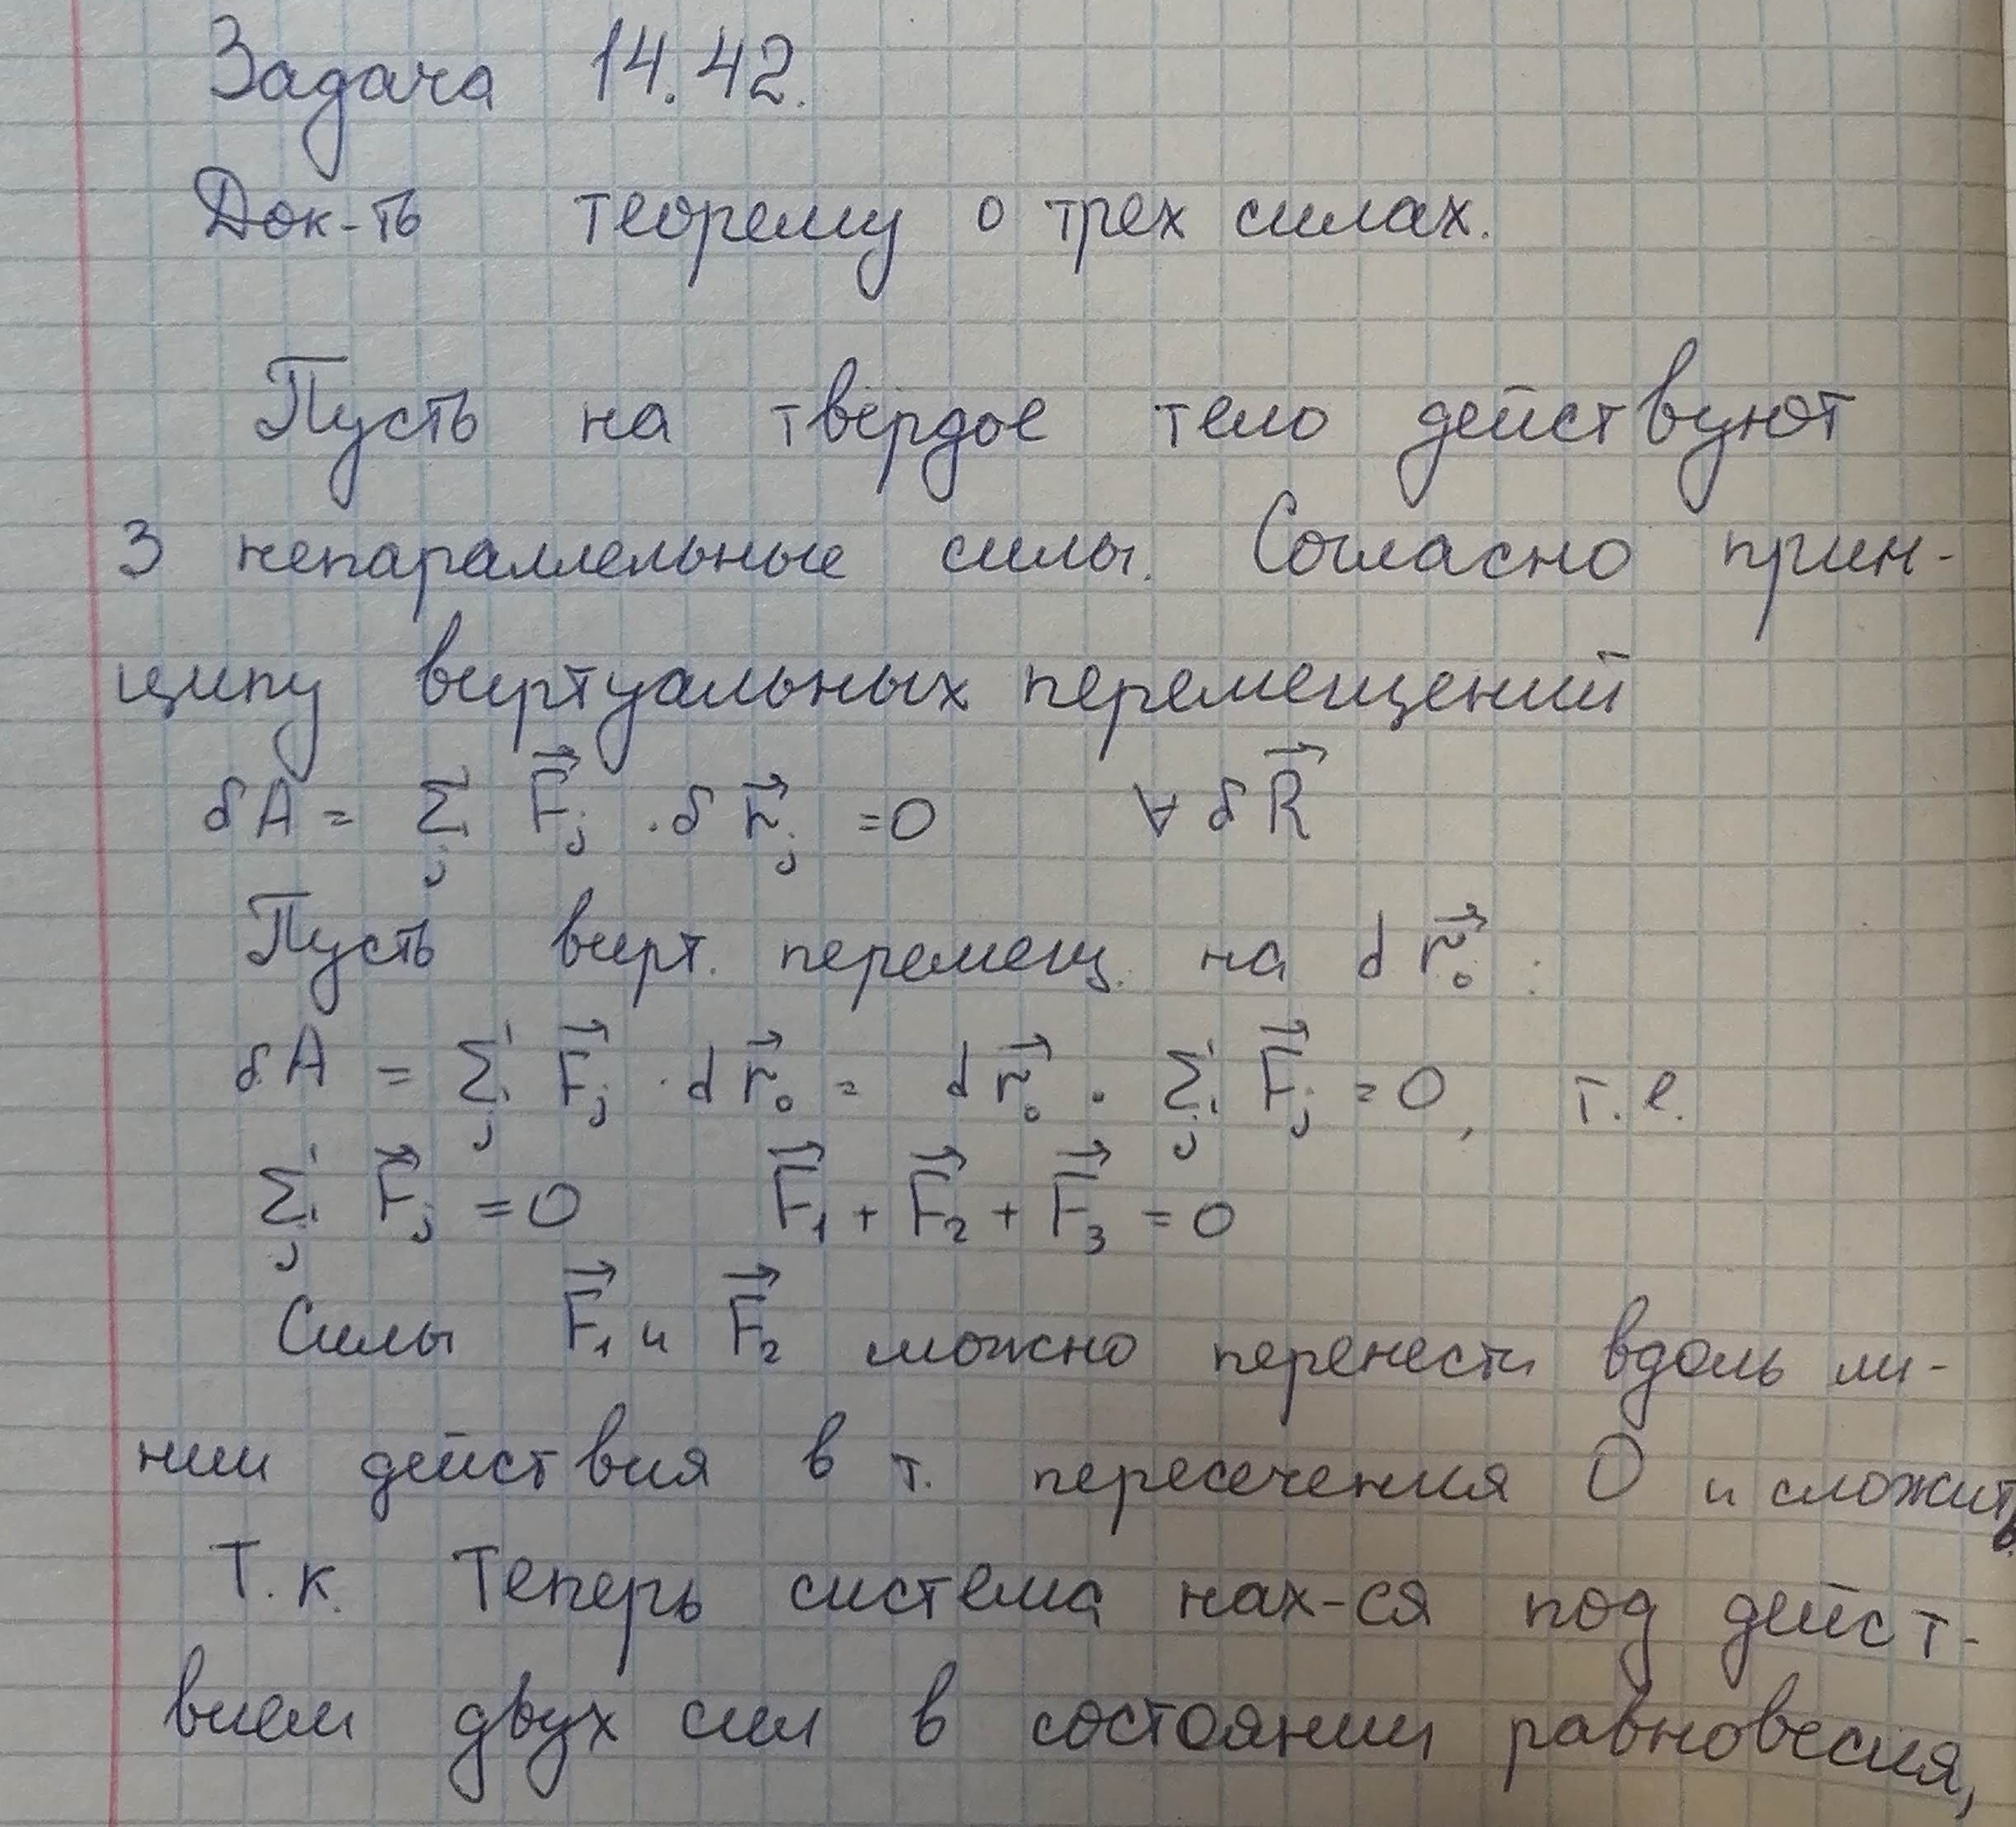 Задача 14.42.
Док-ть теорему о трех силах.
Пусть на твёрдое тело действуют
3 непараллельные силы. Согласно прин-
ципу виртуальных перемещений
δA = ∑_j F⃗_j · δr⃗_j = 0 ∀ δR⃗
Пусть вирт. перемещ. на dr⃗₀ :
δA = ∑_j F⃗_j · dr⃗₀ = dr⃗₀ · ∑_j F⃗_j = 0, т.е.
∑_j F⃗_j = 0 F⃗₁ + F⃗₂ + F⃗₃ = 0
Силы F⃗₁ и F⃗₂ можно перенести вдоль ли-
нии действия в т. пересечения O и сложить.
Т.к. Теперь система нах-ся под дейст-
вием двух сил в состоянии равновесия,